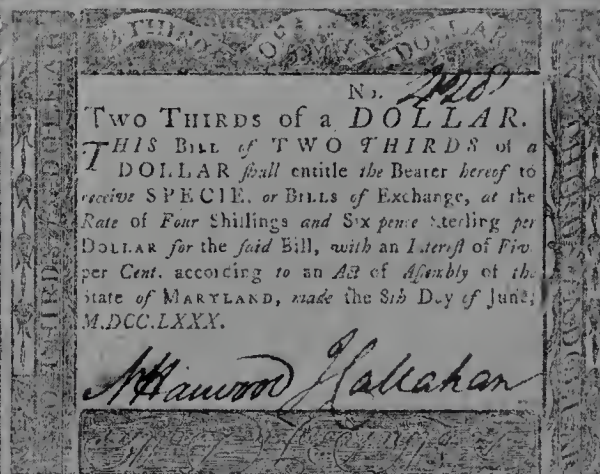 DOLLAR
No. 228
TWO THIRDS of a DOLLAR.
THIS BILL of TWO THIRDS of a
DOLLAR ſhall entitle the Bearer hereof to
receive SPECIE, or BILLS of Exchange, at the
Rate of Four Shillings and Six pence Sterling per
DOLLAR for the ſaid Bill, with an Intereſt of Five
per Cent. according to an Act of Aſſembly of the
State of MARYLAND, made the 8th Day of June,
M.DCC.LXXX.
N Harwood J Callahan